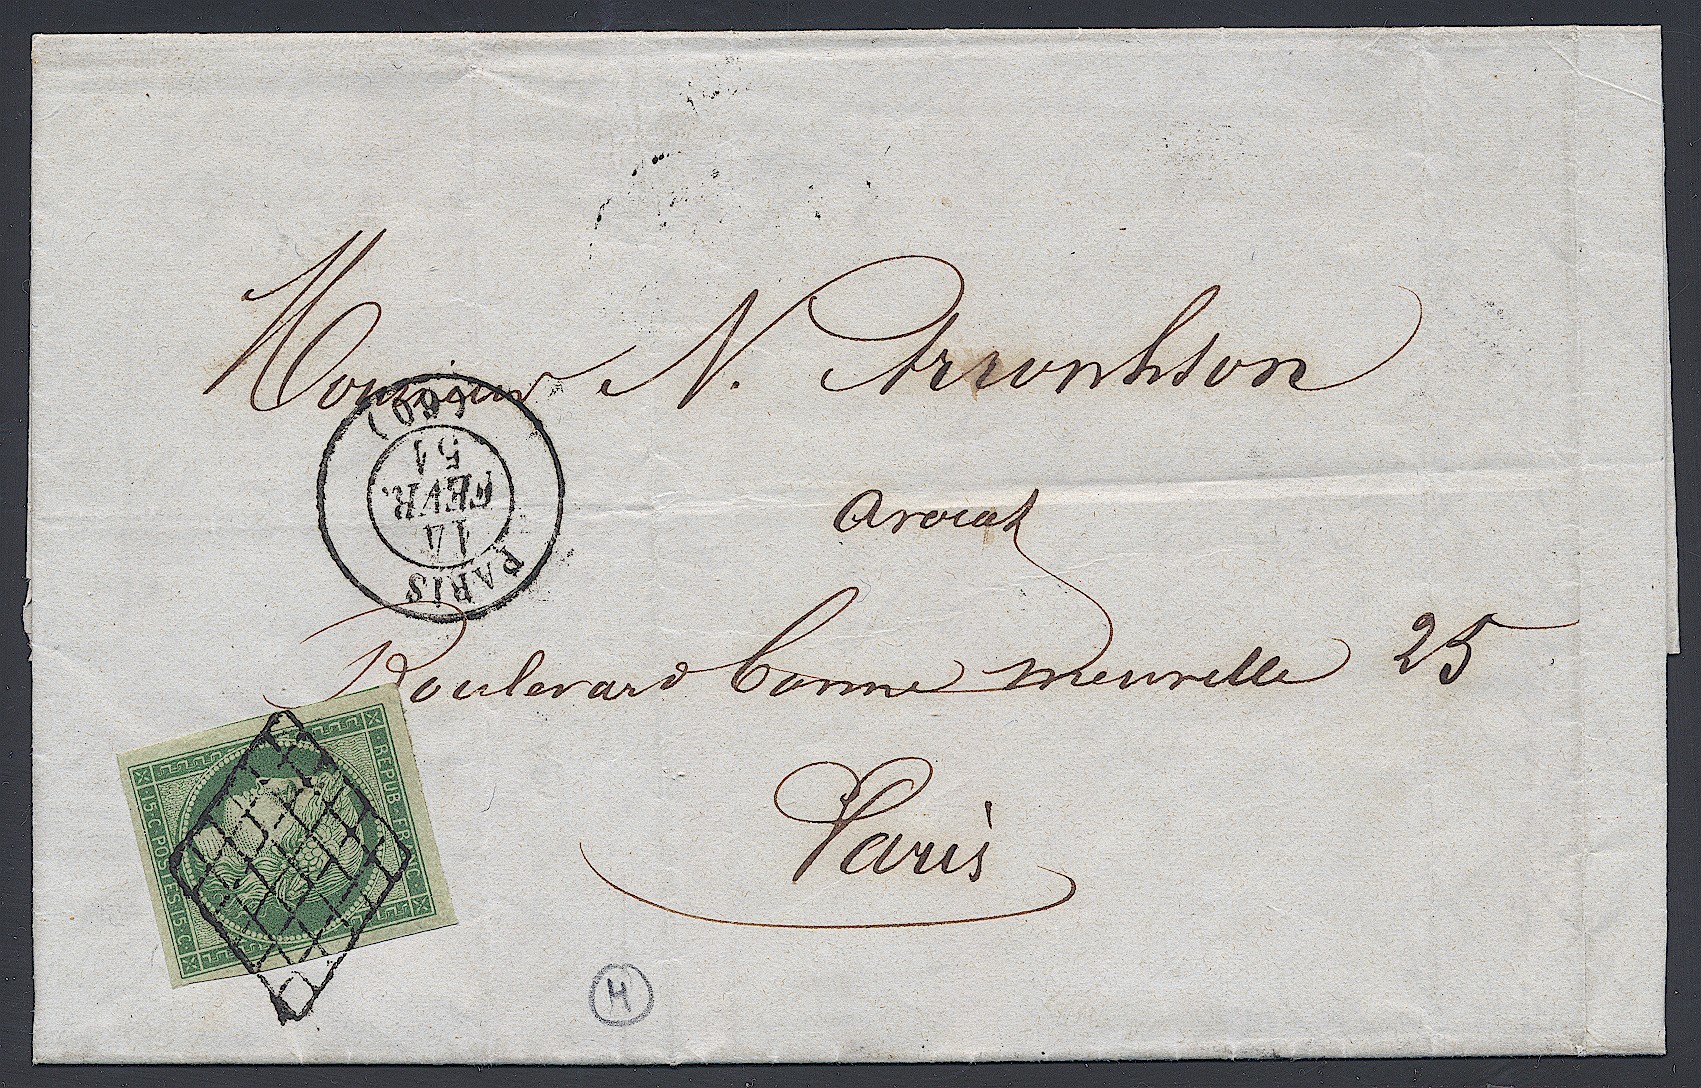 Monsieur N. Arronhson
avocat
Boulevard bonne nouvelle 25
Paris
PARIS
14
FEVR.
51
(60)
REPUB. FRANC.
15. C. POSTES 15. C.
H